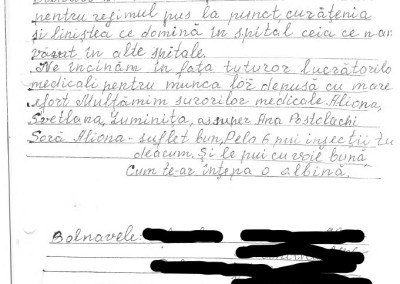 pentru regimul pus la punct, curățenia
și liniștea ce domină în spital ceia ce n-ar
văzut în alte spitale.
Ne încinăm în fața tuturor lucrătorilo
medicali pentru munca lor depusă cu mare
efort Mulțămim surorilor medicale Aliona,
Svetlana, Luminița, Ana Postolachi
Soră Aliona - suflet bun, Pela 6 pui insecții tu
deacum. Și le pui cu voie bună
Cum te-ar înțepa o albină.
Bolnavele: